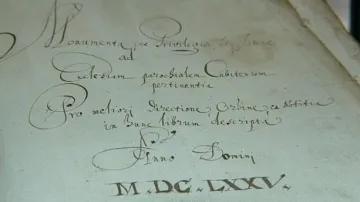 Monumenta, ac Privilegia, et Jura
ad
Ecclesiam parochialem Cubitensem
pertinentia
Pro meliori directione,
in hunc librum descripta
Anno Domini
M.DC.LXXV.